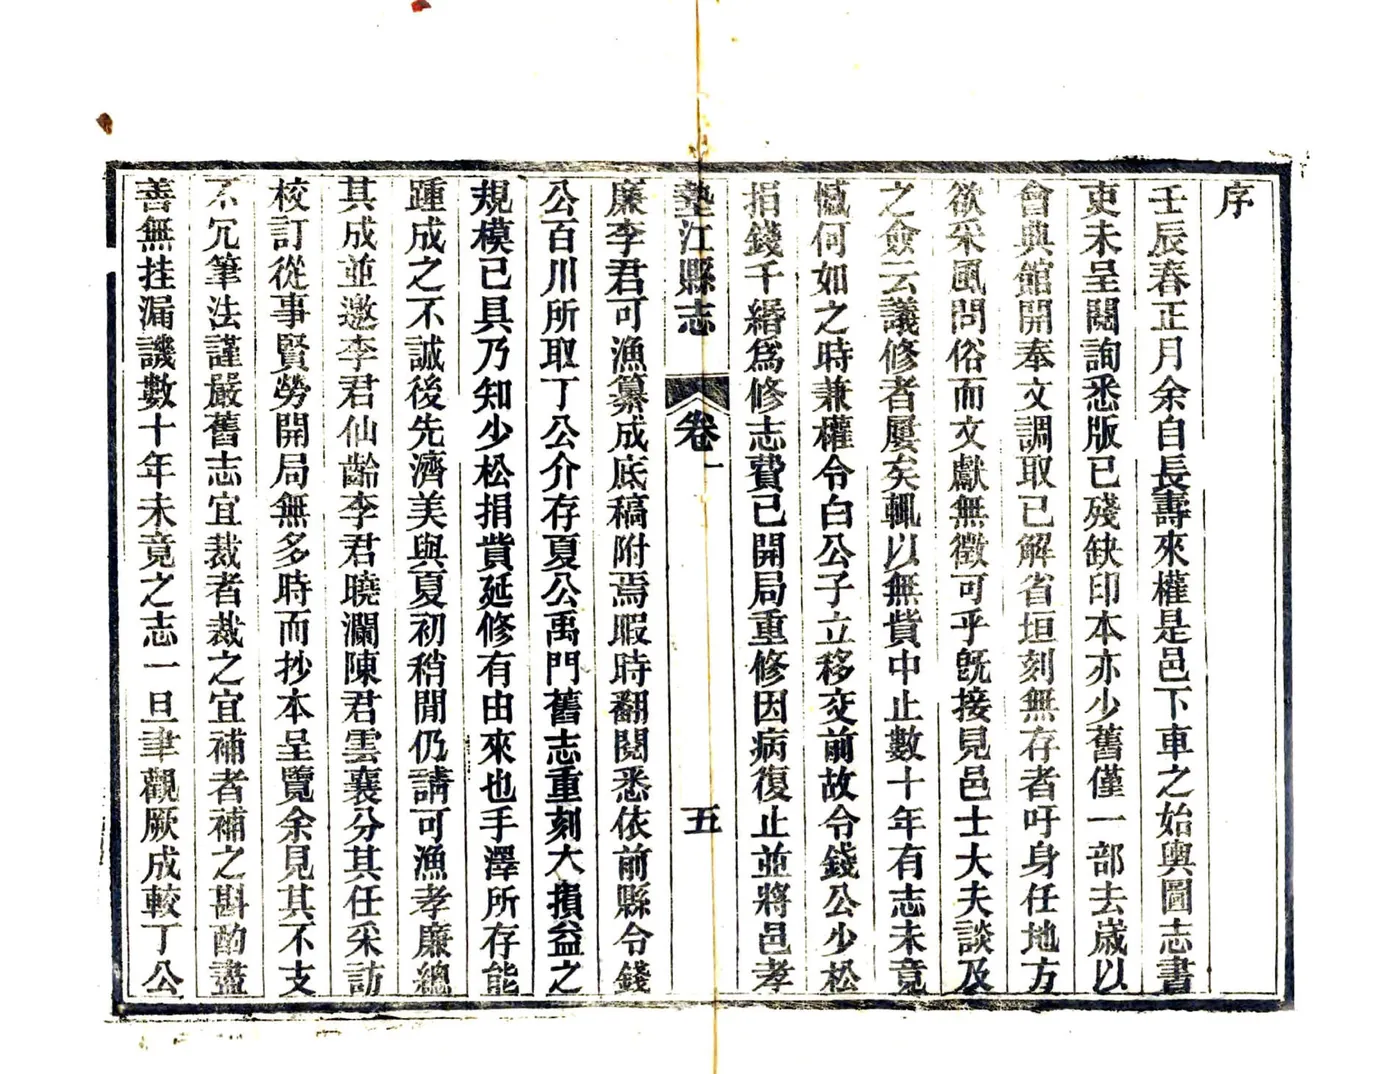 序
壬辰春正月余自長壽來權是邑下車之始輿圖志書
吏未呈閱詢悉版已殘缺印本亦少舊僅一部去歲以
會典館開奉文調取已解省垣刻無存者吁身任地方
欲采風問俗而文獻無徵可乎旣接見邑士大夫談及
之僉云議修者屢矣輒以無貲中止數十年有志未竟
憾何如之時兼權令白公子立移交前故令錢公少松
捐錢千緡爲修志費已開局重修因病復止並將邑孝
墊江縣志
卷一
五
廉李君可漁纂成底稿附焉暇時翻閱悉依前縣令錢
公百川所取丁公介存夏公禹門舊志重刻大損益之
規模已具乃知少松捐貲延修有由來也手澤所存能
踵成之不誠後先濟美與夏初稍閒仍請可漁孝廉總
其成並邀李君仙齡李君曉瀾陳君雲襄分其任采訪
校訂從事賢勞開局無多時而抄本呈覽余見其不支
不冗筆法謹嚴舊志宜裁者裁之宜補者補之斟酌盡
善無挂漏譏數十年未竟之志一旦聿觀厥成較丁公